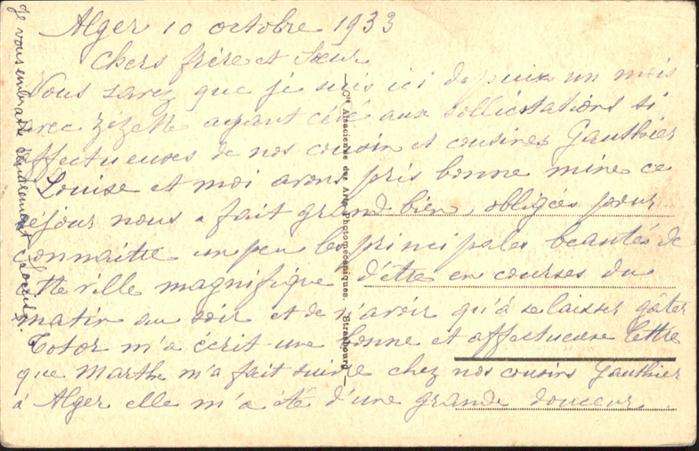 Alger 10 octobre 1933
Chers frère et Sœur
Vous savez que je suis ici depuis un mois
avec Zizette ayant cédé aux sollicitations si
affectueuses de nos cousin et cousines Gauthier
Louise et moi avons pris bonne mine ce
séjour nous a fait grand bien, obligés pour
connaître un peu les principales beautés de
cette ville magnifique d'être en courses du
matin au soir et de n'avoir qu'à se laisser gâter
Totor m'a écrit une bonne et affectueuse lettre
que Marthe m'a fait suivre chez nos cousins Gauthier
à Alger elle m'a été d'une grande douceur
Je vous embrasse tendrement Louise
Cie Alsacienne des Arts Photomécaniques, Strasbourg